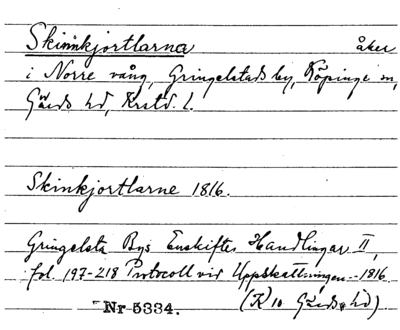 Skinnkjortlarna åker
i Norre vång, Gringelstads by, Köpinge sn,
Gärds hd, Krstd. l.
Skinkjortlarne 1816.
Gringelsta Bys Enskiftes Handlingar II,
fol. 197-218 Protocoll vid Uppskattningen -- 1816
(K 10 Gärds hd)
Nr 5334.